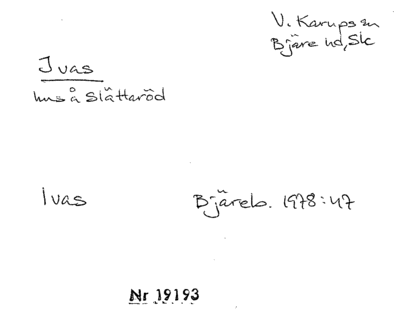 V. Karups sn
Bjäre hd, Sk
Ivas
hus å Slättaröd
Ivas Bjäreb. 1978:47
Nr 19193